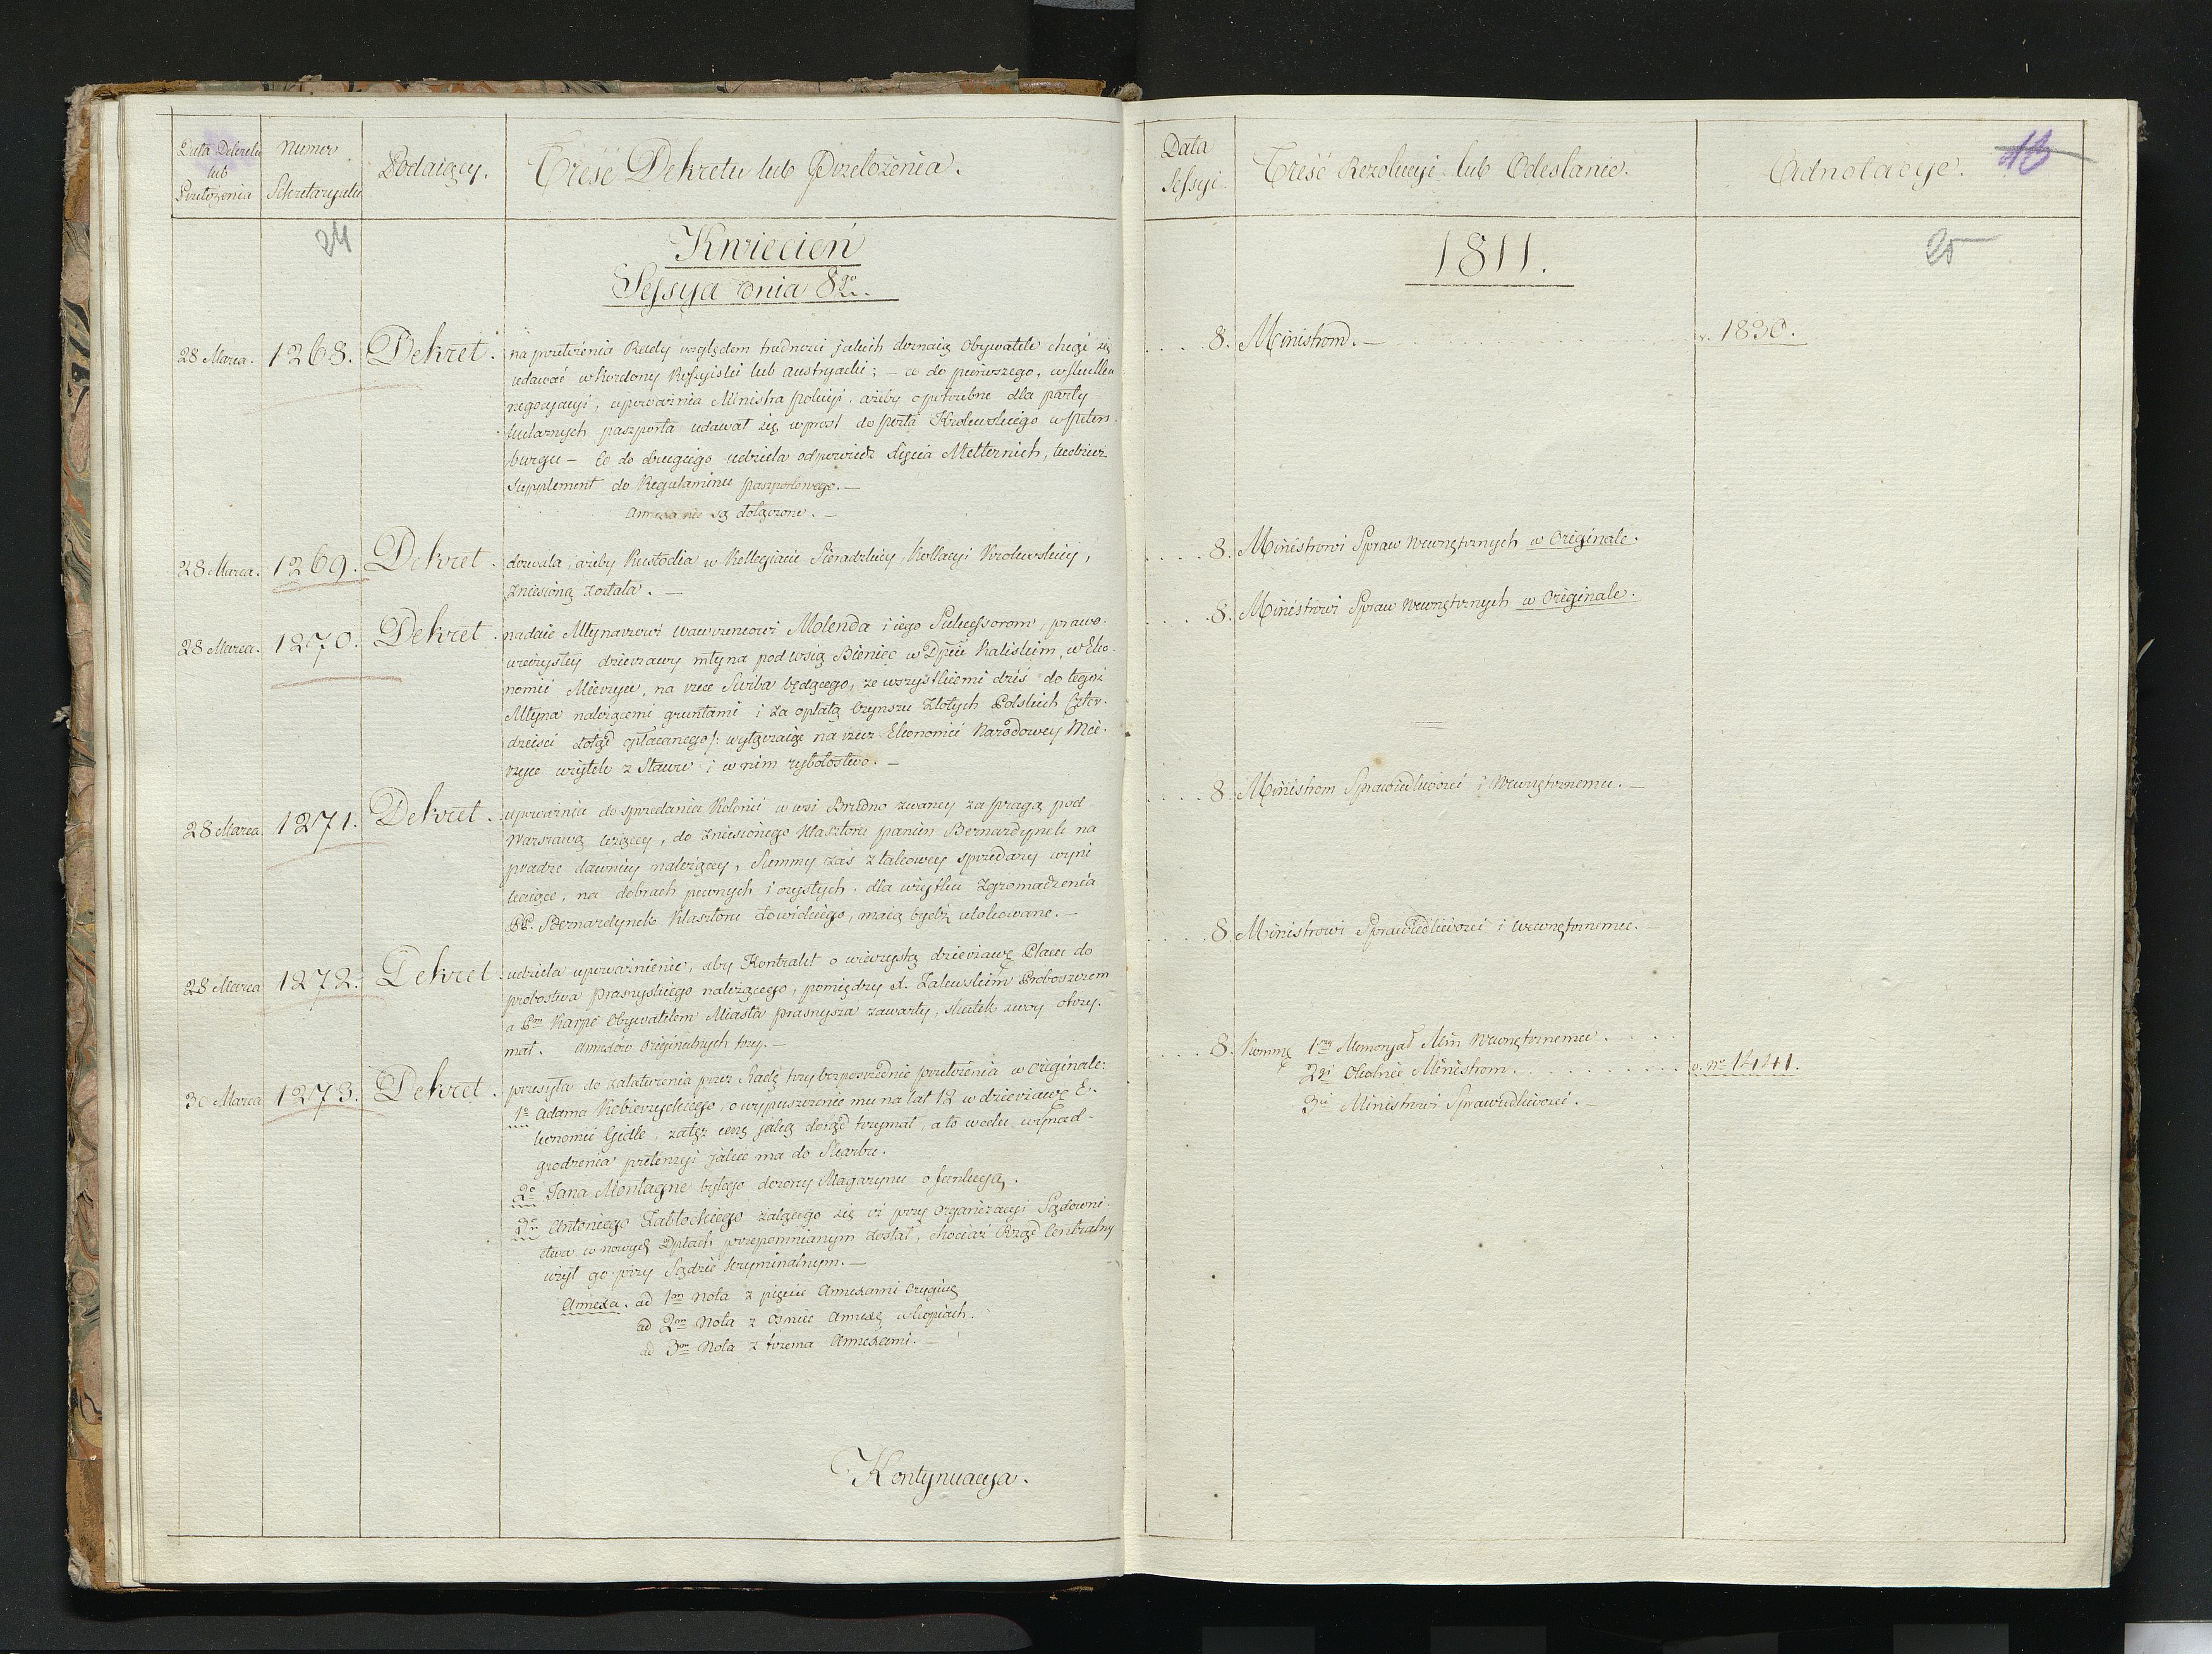 Data Dekretu
lub
Przełożenia
Numer
Sekretaryatu
Podaiący.
Treść Dekretu lub Przełożenia.
24
Kwiecień
Sessya dnia 8go
28 Marca. 1268. Dekret. na przełożenia Rady względem trudności jakich doznaią Obywatele chcąć się
udawać w kordony Rossyiski lub austryacki; – co do pierwszego, w skutku
negocyacyi, upoważnia Ministra Policyi, ażeby o potrzebne dla party-
kularnych paszporta udawał się wprost do Posła Królewskiego w Peters-
burgu – Co do drugiego udziela odpowiedź Xięcia Metternich, tudzież
Supplement do Regulaminu paszportowego. –
Annexa nie są dołączone. –
28 Marca. 1269. Dekret. dozwala, ażeby Kustodia w Kollegiacie Sieradzkiey, Kollacyi Krolewskiey,
zniesioną została. –
28 Marca. 1270. Dekret. nadaie Młynarzowi Wawrzencowi Molenda i iego Sukcessorom, prawo
wieczystey dzierzawy młyna pod wsią Bieniec w Dpcie Kaliskim, w Eko-
nomii Mierzyce, na rzece Swiba będącego, ze wszystkiemi dziś do tegoż
Młyna należącemi gruntami i za opłatą Czynszu Złotych Polskich Czter-
dzieści dotąd opłacanego /: wyłączaiąc na rzecz Ekonomii Narodowey Mie-
rzyce użytek z Stawu i w nim rybołostwo. –
28 Marca 1271. Dekret. upoważnia do sprzedania Kolonii w wsi Brudno zwaney za Pragą pod
Warszawą leżącey, do zniesionego Klasztoru panien Bernardynek na
pradze dawniey należącey, Summy zaś z takowey sprzedaży wyni-
kaiące, na dobrach pewnych i czystych, dla użytku Zgromadzenia
PP. Bernardynek Klasztoru Łowickiego, maią bydź ulokowane. –
28 Marca 1272. Dekret. udziela upoważnienie, aby Kontrakt o wieczystą dzierżawę Placu do
probostwa Prasnyskiego należącego, pomiędzy X. Zalewskim Proboszczem
a Pem Karpi Obywatelem Miasta Prasnysza zawarty, skutek swoy otrzy-
mał. Annexów oryginalnych trzy. –
30 Marca 1273. Dekret. przesyła do załatwienia przez Radę trzy bezposrednie przełożenia w originale:
1o Adama Kobierzyckiego, o wypuszczenie mu na lat 12 w dzierżawę E-
konomii Gidle, za tęż cenę jaką dotąd trzymał, a to w celu wynad-
grodzenia pretensyi jakie ma do Skarbu.
2o Jana Montagne byłego dozorcy Magazynu o funkcyą.
3o Antoniego Zabłockiego żalącego się iż przy Organizacyi Sądowni-
ctwa w nowych Dptach przepomnianym został, chociaż Rząd Centralny
użył go przy Sądzie kryminalnym. –
Annexa. ad 1m Nota z pięciu Annexami Orygin:
ad 2m Nota z ośmiu Annexą w kopiach.
ad 3m Nota z trzema Annexami. –
Kontynuacya.
Data
Sessyi.
Treść Rezolucyi lub Odesłanie.
Adnotacye.
1811.
25
8. Ministrom. – v. 1830.
8. Ministrowi Spraw Wewnętrznych w Originale.
8. Ministrowi Spraw Wewnętrznych w Originale.
8. Ministrom Sprawiedliwości i Wewnętrznemu. –
8. Ministrowi Sprawiedliwości i Wewnętrznemu. –
8. Kommę 1szy Memoryał Min Wewnętrznemu.
2gi Okolnie Ministrom. v. No 1441.
3ci Ministrowi Sprawiedliwości. –